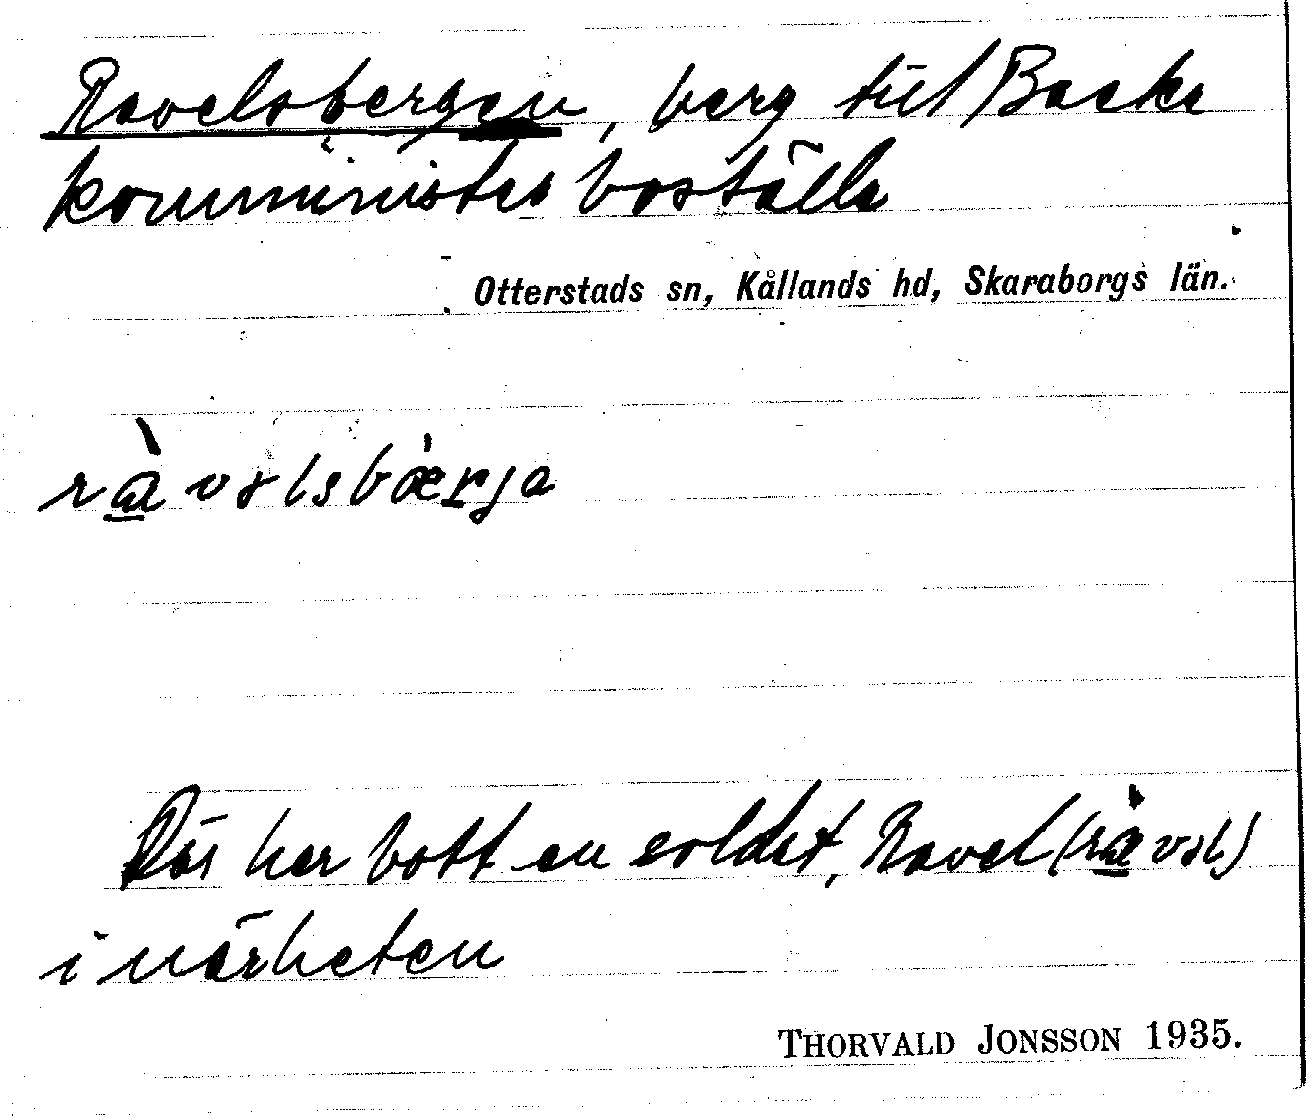 Ravelsbergen, berg till Backa
komministerboställe
Otterstads sn, Kållands hd, Skaraborgs län.
ràvəlsbæ̀rja
Där har bott en soldat, Ravel (ràvəl)
i närheten
THORVALD JONSSON 1935.